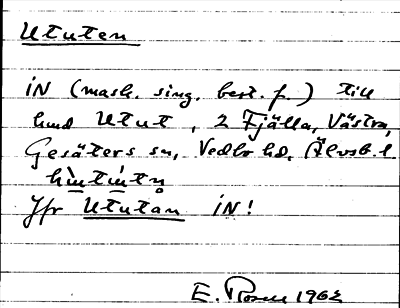 Ututen
iN (mask. sing. best. f.) till
hmd Utut, 2 Fjälla, Västra,
Gesäters sn, Vedbo hd, Älvsb. l
Jfr Ututan iN!
E. Rosen 1962